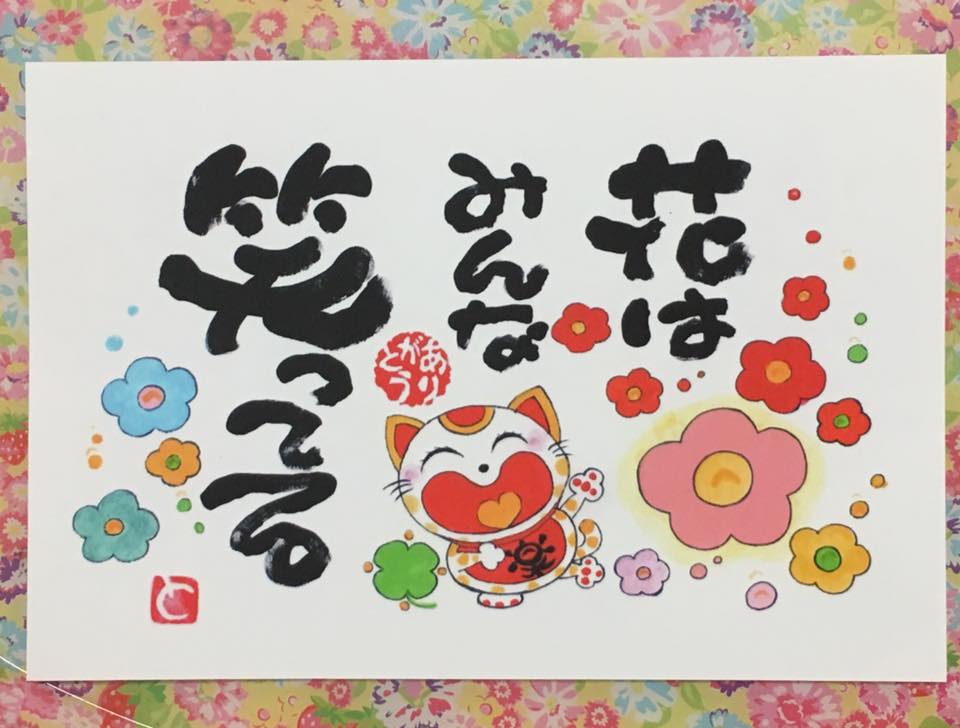 花は
みんな
笑ってる
ありがとう